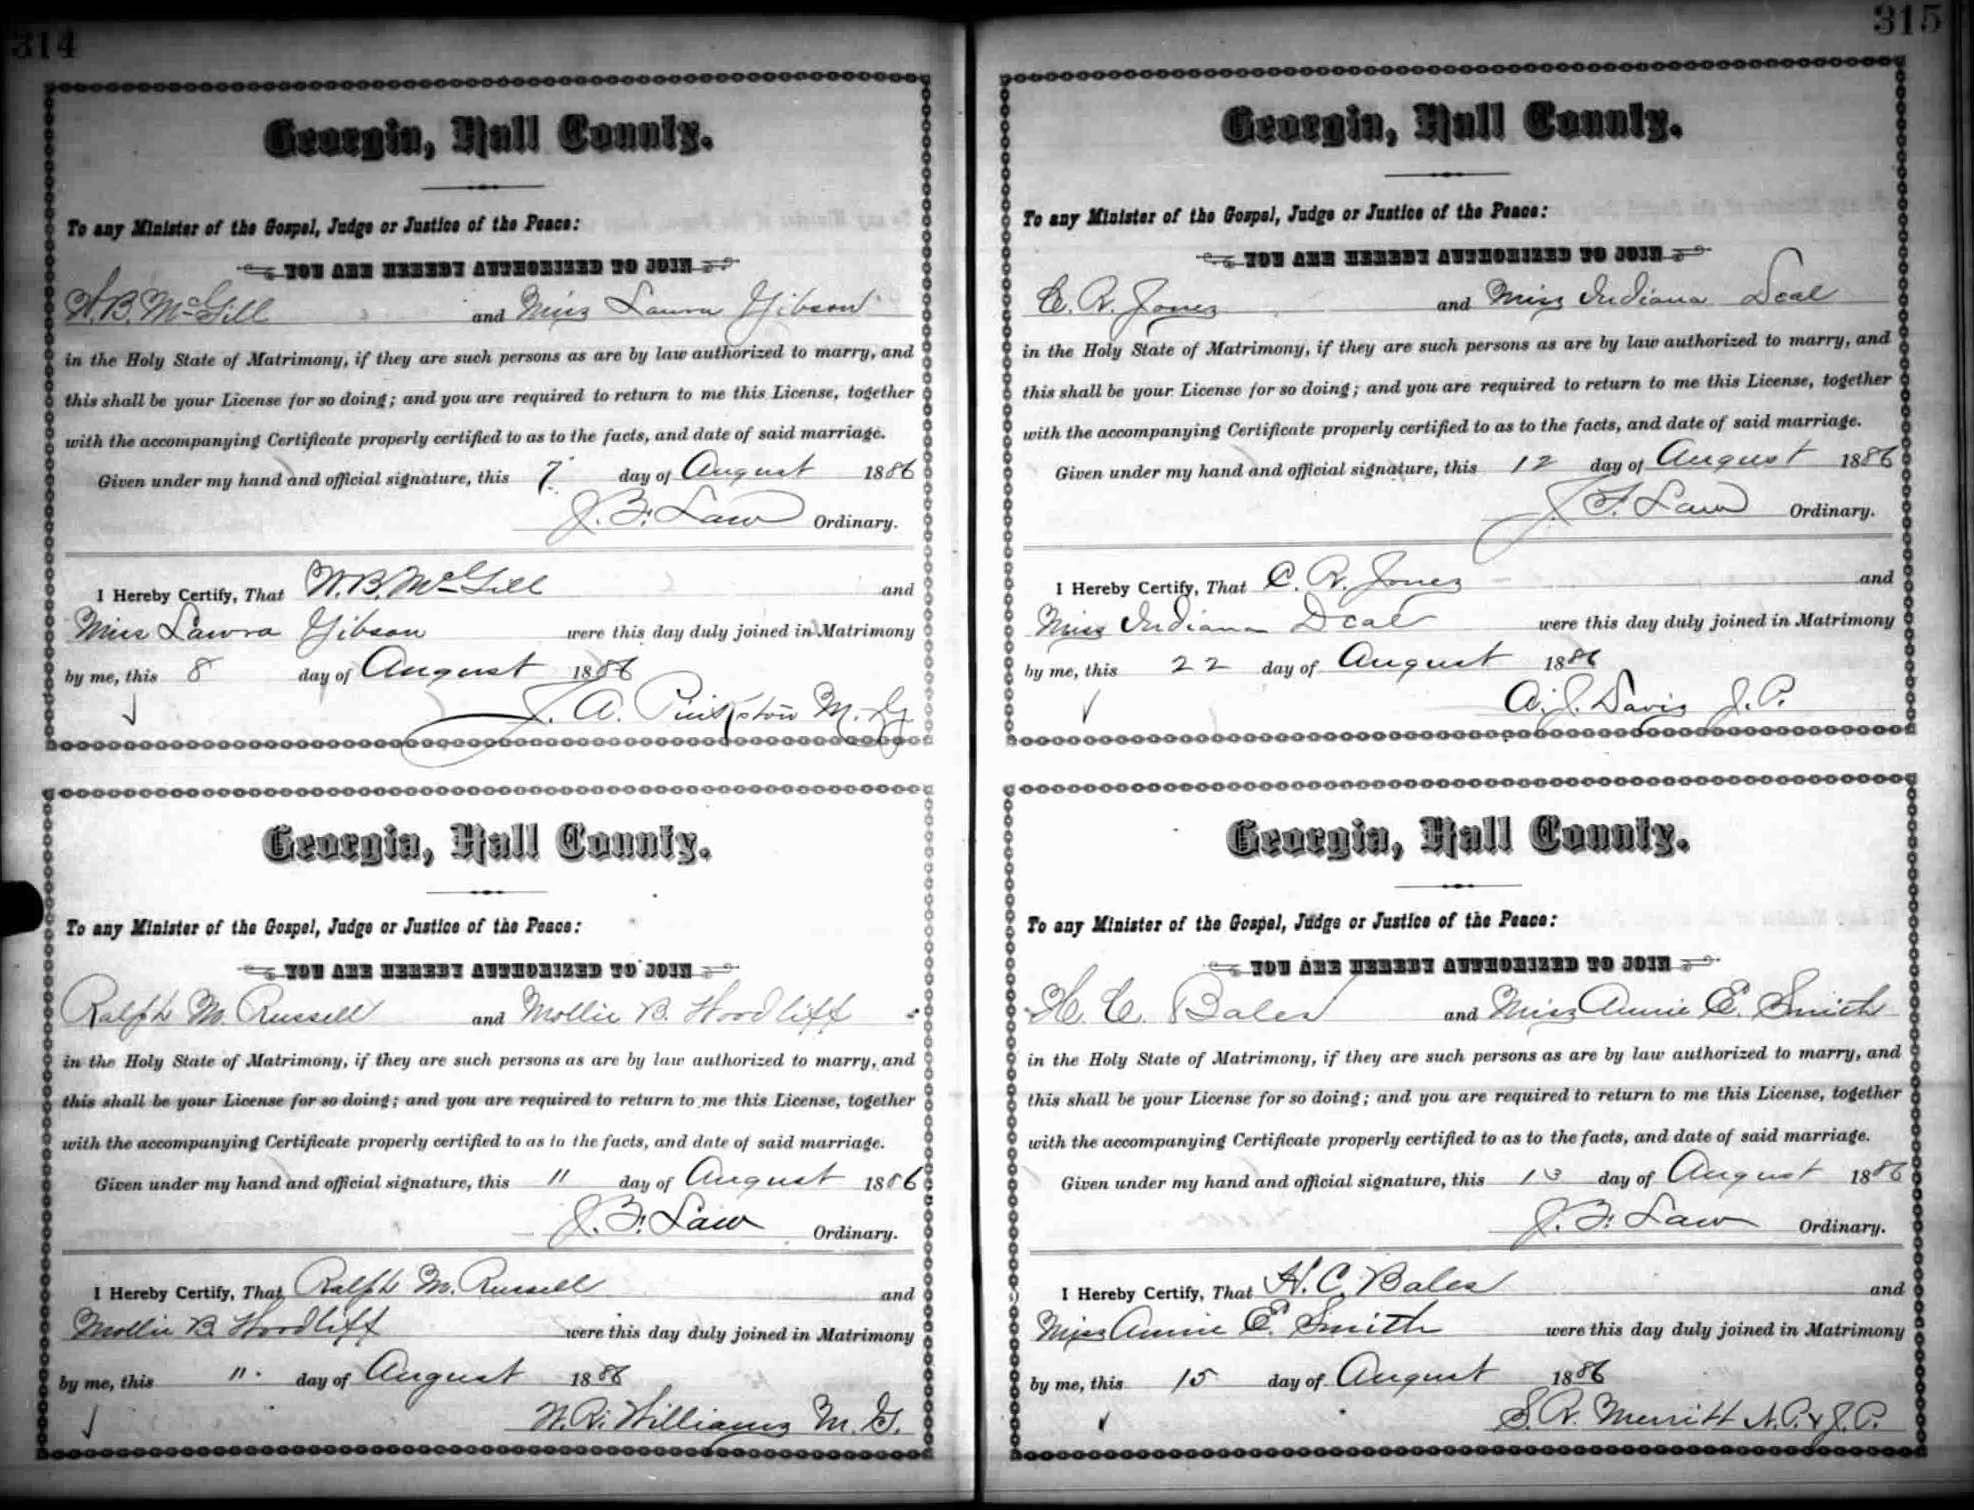 314
Georgia, Hall County.
To any Minister of the Gospel, Judge or Justice of the Peace:
YOU ARE HEREBY AUTHORIZED TO JOIN
W. B. McGill and Miss Laura Gibson
in the Holy State of Matrimony, if they are such persons as are by law authorized to marry, and
this shall be your License for so doing; and you are required to return to me this License, together
with the accompanying Certificate properly certified to as to the facts, and date of said marriage.
Given under my hand and official signature, this 7 day of August 1886
J. F. Law Ordinary.
I Hereby Certify, That W. B. McGill and
Miss Laura Gibson were this day duly joined in Matrimony
by me, this 8 day of August 1886
J. A. Pinkston M. G.
Georgia, Hall County.
To any Minister of the Gospel, Judge or Justice of the Peace:
YOU ARE HEREBY AUTHORIZED TO JOIN
Ralph M. Russell and Mollie B. Woodliff
in the Holy State of Matrimony, if they are such persons as are by law authorized to marry, and
this shall be your License for so doing; and you are required to return to me this License, together
with the accompanying Certificate properly certified to as to the facts, and date of said marriage.
Given under my hand and official signature, this 11 day of August 1886
J. F. Law Ordinary.
I Hereby Certify, That Ralph M. Russell and
Mollie B Woodliff were this day duly joined in Matrimony
by me, this 11. day of August 1886
W. R. Williams M. G.
315
Georgia, Hall County.
To any Minister of the Gospel, Judge or Justice of the Peace:
YOU ARE HEREBY AUTHORIZED TO JOIN
C. R. Jones and Miss Indiana Deal
in the Holy State of Matrimony, if they are such persons as are by law authorized to marry, and
this shall be your License for so doing; and you are required to return to me this License, together
with the accompanying Certificate properly certified to as to the facts, and date of said marriage.
Given under my hand and official signature, this 12 day of August 1886
J. F. Law Ordinary.
I Hereby Certify, That C. R. Jones and
Miss Indiana Deal were this day duly joined in Matrimony
by me, this 22 day of August 1886
A. J. Davis J. P.
Georgia, Hall County.
To any Minister of the Gospel, Judge or Justice of the Peace:
YOU ARE HEREBY AUTHORIZED TO JOIN
H. C. Bales and Miss Annie E. Smith
in the Holy State of Matrimony, if they are such persons as are by law authorized to marry, and
this shall be your License for so doing; and you are required to return to me this License, together
with the accompanying Certificate properly certified to as to the facts, and date of said marriage.
Given under my hand and official signature, this 13 day of August 1886
J. F. Law Ordinary.
I Hereby Certify, That H. C. Bales and
Miss Annie E. Smith were this day duly joined in Matrimony
by me, this 15 day of August 1886
S. R. Merritt N. P. & J. P.